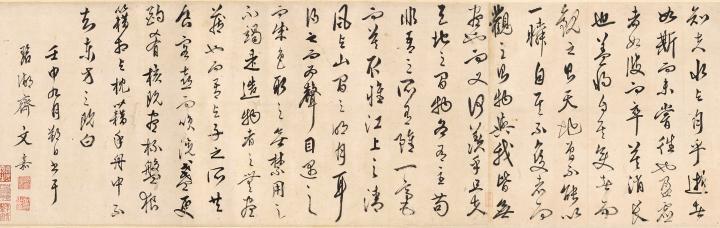 知夫水與月乎逝者
如斯而未嘗往也盈虛
者如彼而卒莫消長
也蓋將自其變者而
觀之則天地曾不能以
一瞬自其不變者而
觀之則物與我皆無
盡也而又何羨乎且夫
天地之間物各有主苟
非吾之所有雖一毫
而莫取惟江上之清
風與山間之明月耳
得之而為聲目遇之
而成色取之無禁用之
不竭是造物者之無盡
藏也而吾與子之所共
食客喜而笑洗盞更
酌肴核既盡杯盤狼
籍相與枕藉乎舟中不
知東方之既白
壬申九月朔日書于
碧湖齋 文嘉